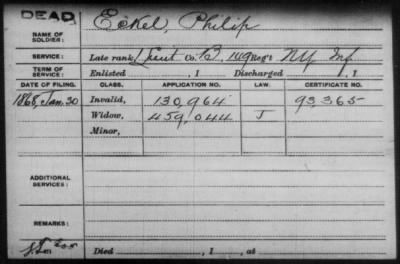 DEAD
NAME OF SOLDIER: Eckel, Philip
SERVICE: Late rank Lieut Co. B, 149 Reg't NY Inf
TERM OF SERVICE: Enlisted , 1 Discharged , 1
DATE OF FILING. CLASS. APPLICATION NO. LAW. CERTIFICATE NO.
1868, Jan. 30 Invalid, 130,964 93,365
Widow, 459,044 J
Minor,
ADDITIONAL SERVICES:
REMARKS:
Died , 1 , at